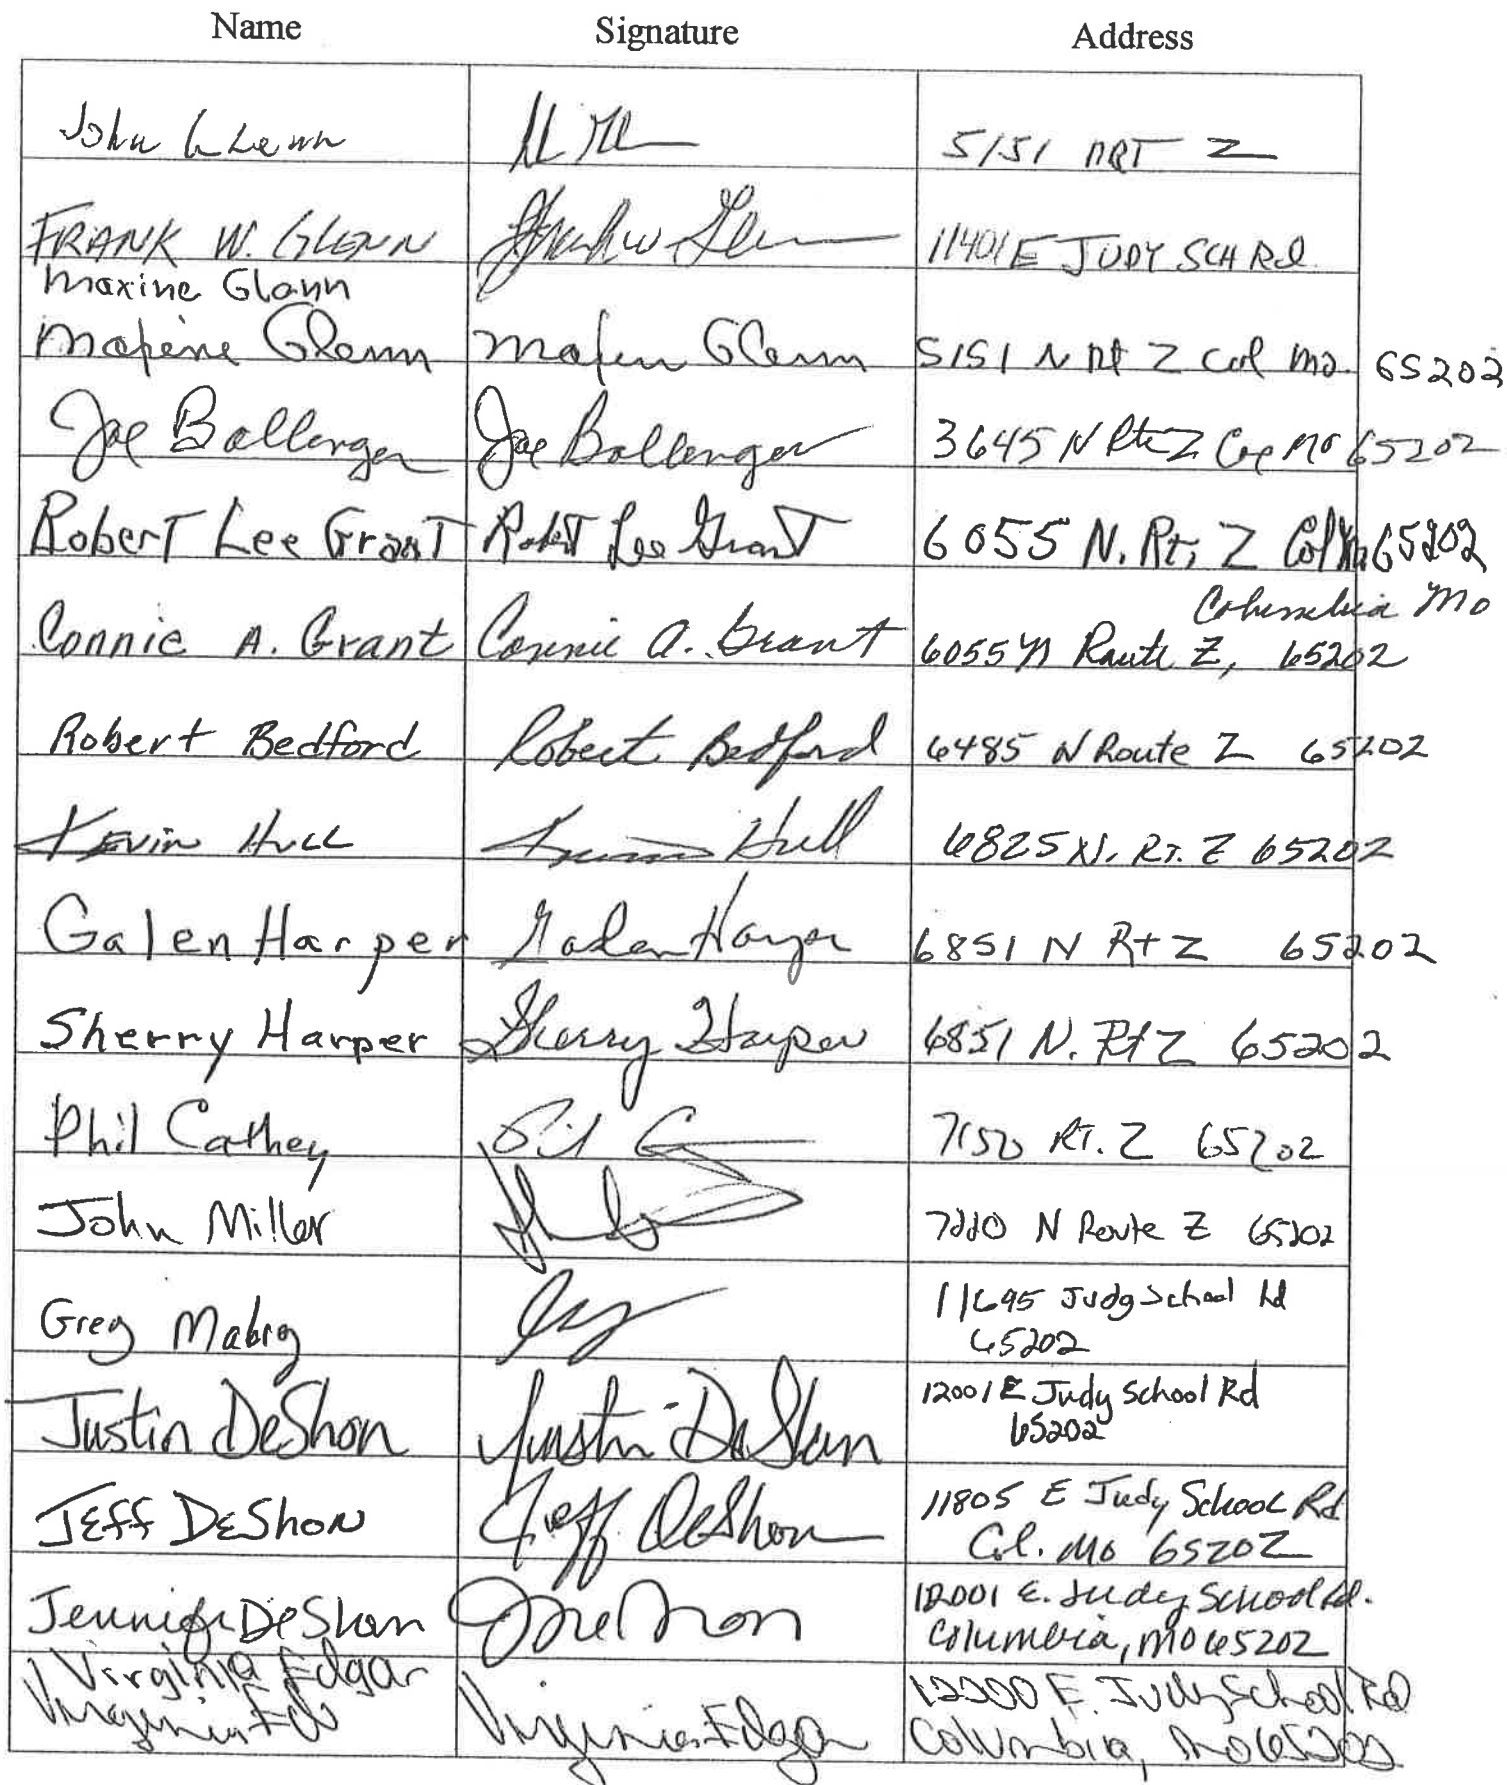 Name Signature Address
John Glenn 5151 N RT Z
FRANK W. GLENN Frank W Glenn 11401 E JUDY SCH Rd.
Maxine Glenn
Maxine Glenn Maxine Glenn 5151 N Rt Z Col Mo. 65202
Joe Ballenger Joe Ballenger 3645 N Rte Z Col Mo 65202
Robert Lee Grant Robert Lee Grant 6055 N. Rt. Z Col Mo 65202
Columbia Mo
Connie A. Grant Connie A. Grant 6055 N Route Z, 65202
Robert Bedford Robert Bedford 6485 N Route Z 65202
Kevin Hull Kevin Hull 6825 N. RT. Z 65202
Galen Harper Galen Harper 6851 N Rt Z 65202
Sherry Harper Sherry Harper 6851 N. Rt Z 65202
Phil Cathey 7150 RT. Z 65202
John Miller 7220 N Route Z 65202
Greg Mabry 11695 Judy School Rd
65202
Justin DeShon Justin DeShon 12001 E Judy School Rd
65202
JEFF DESHON Jeff DeShon 11805 E Judy School Rd
Col. Mo 65202
Jennifer DeShon 12001 E. Judy School Rd.
Columbia, MO 65202
Virginia Edgar 12200 E. Judy School Rd
Virginia Ed Virginia Edgar Columbia, Mo 65202